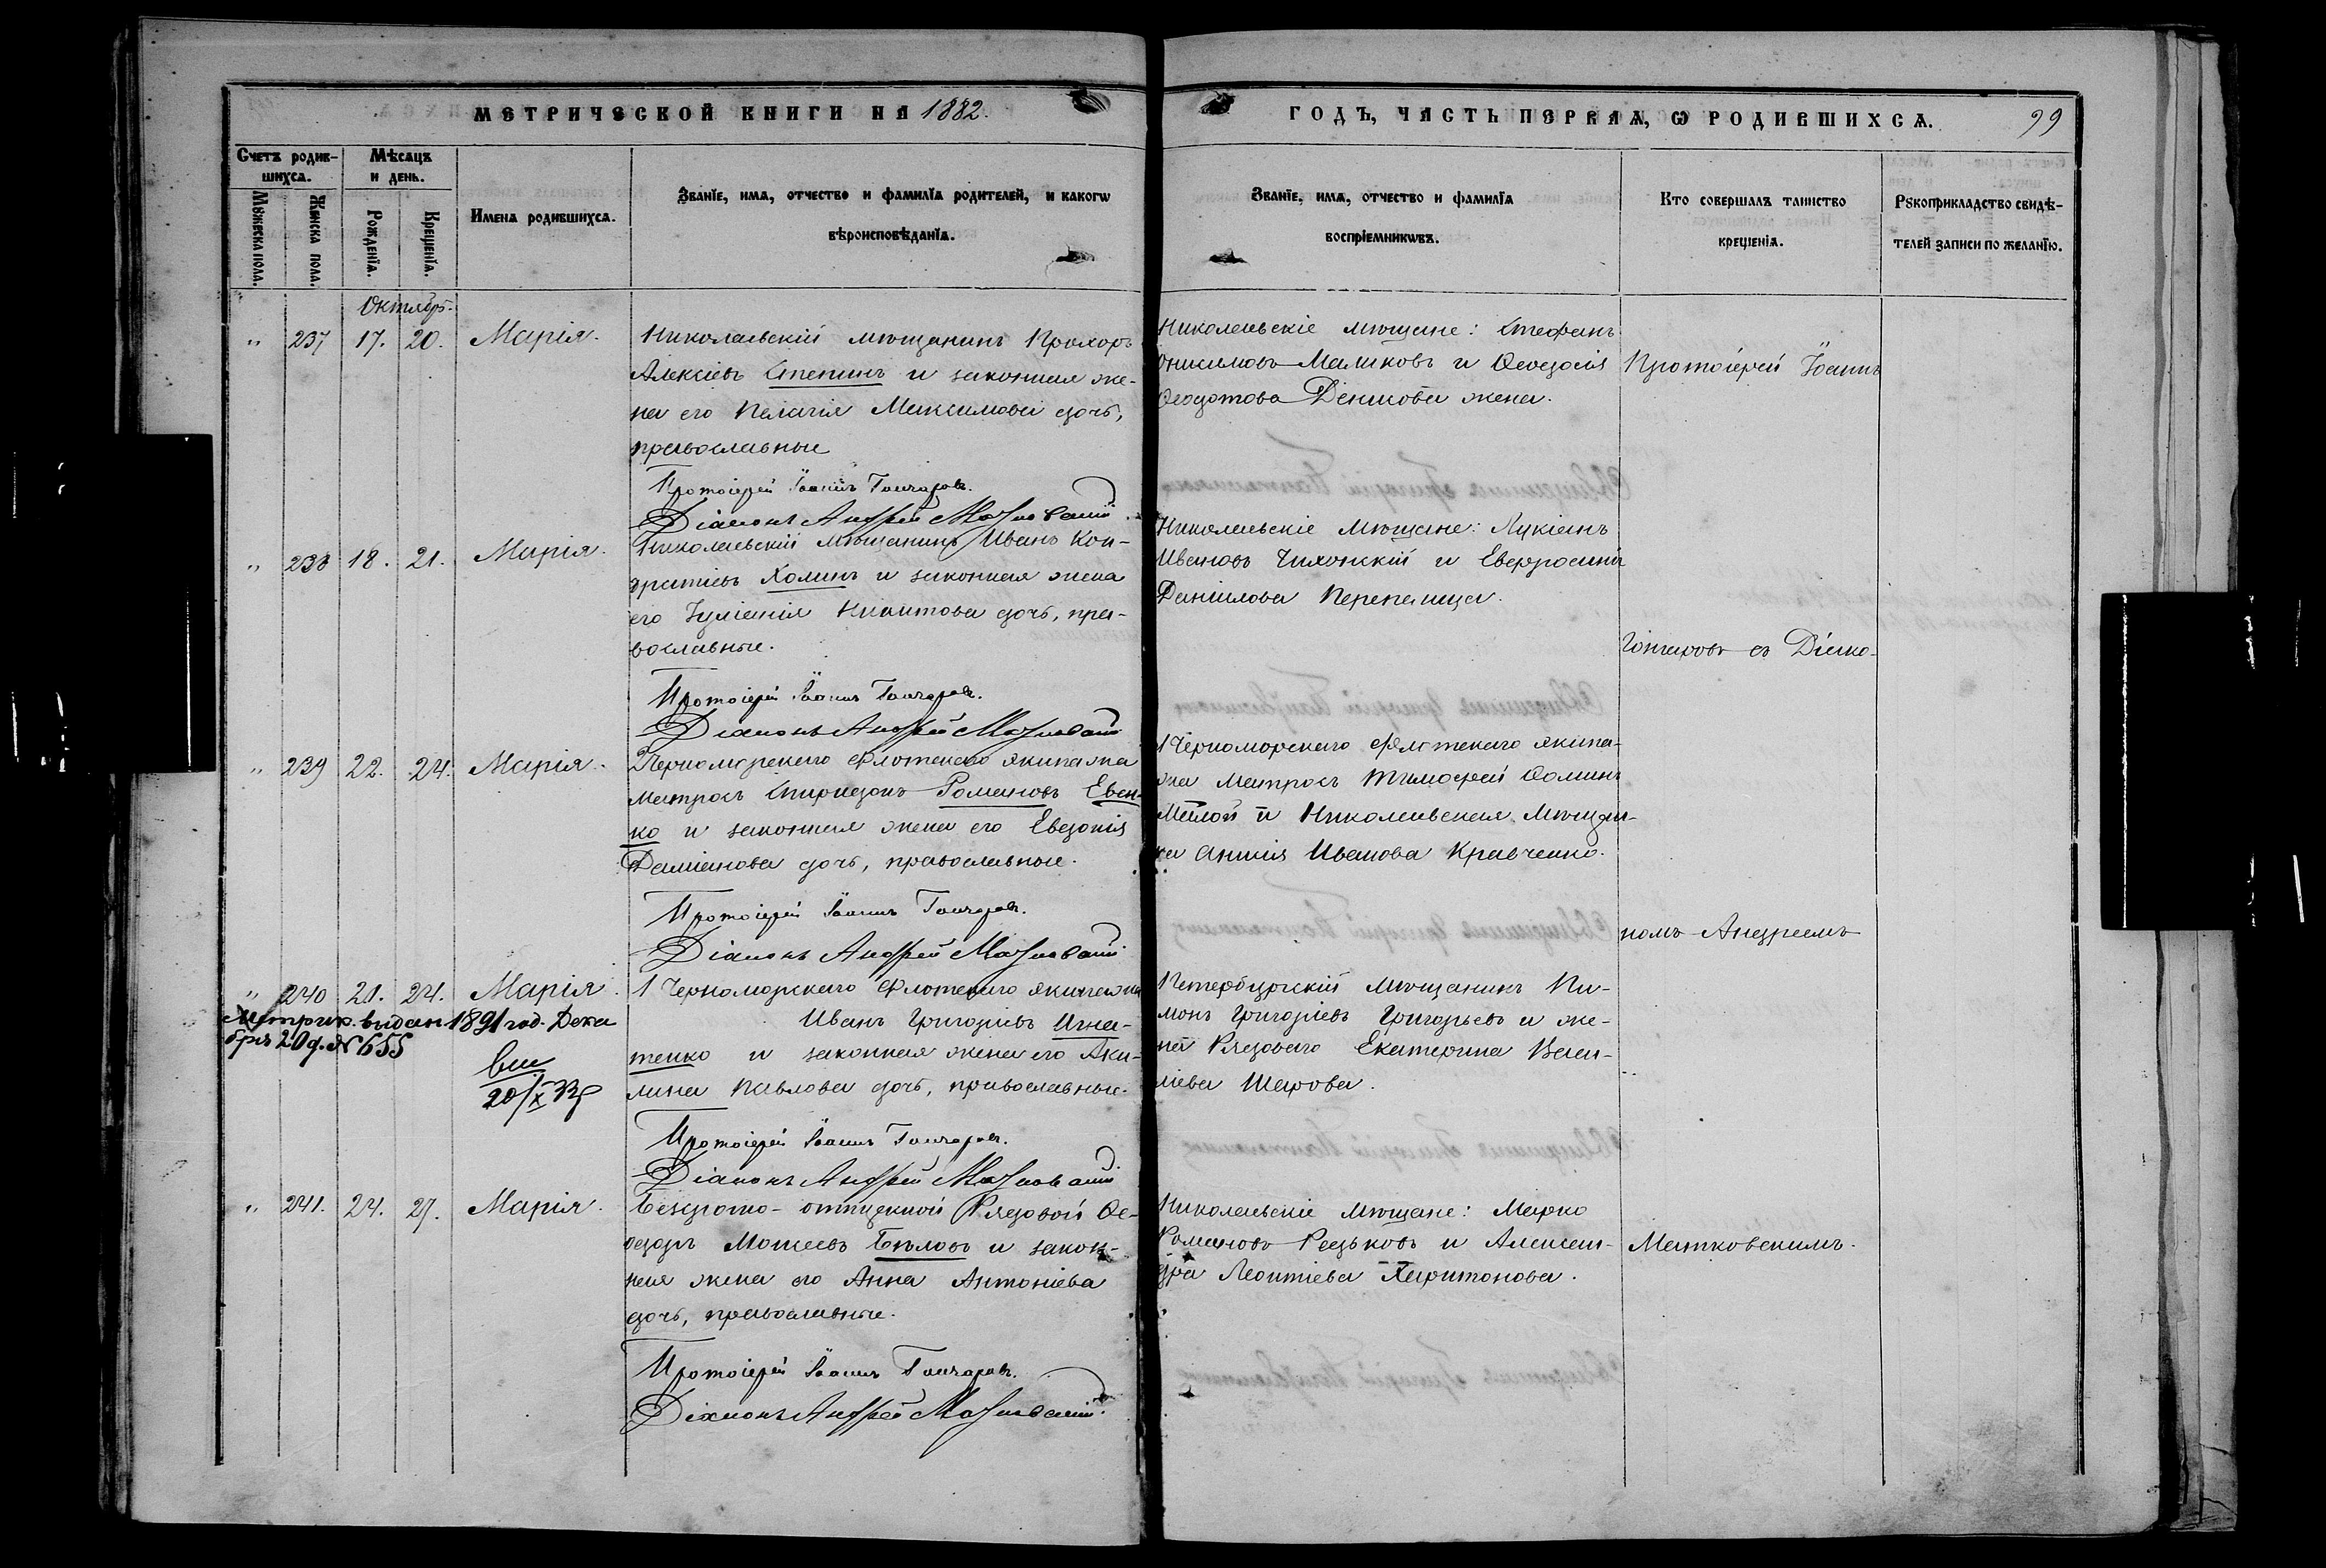 МЕТРИЧЕСКОЙ КНИГИ НА 1882.
ГОДЪ, ЧАСТЬ ПЕРВАЯ, Ѡ РОДИВШИХСѦ.
99
Счетъ родив-
шихсѧ.
Мѣсѧцъ
и день.
Мꙋжеска пола.
Женска пола.
Рожденїѧ.
Крещенїѧ.
Имена родившихсѧ.
Званїе, имѧ, отчество и фамилїѧ родителей, и какогѡ
вѣроисповѣданїѧ.
Званїе, имѧ, отчество и фамилїѧ
воспрїемникѡвъ.
Кто совершалъ таинство
крещенїѧ.
Рꙋкоприкладство свидѣ-
телей записи по желанїю.
Октябрь.
" 237 17. 20. Марія.
Николаевскій мѣщанинъ Прохоръ
Алексіевъ Степинъ и законная же-
на его Пелагія Максимова дочь,
православные
Протоіерей Іоаннъ Гончаровъ.
Діаконъ Андрей
Николаевскіе мѣщане: Стефанъ
Онисимовъ Малиховъ и Ѳеодосія
Ѳеодотова Денисова жена.
Протоіерей Іоаннъ
" 238 18. 21. Марія.
Николаевскій мѣщанинъ Иванъ Кон-
дратіевъ Холинъ и законная жена
его Іуліанія Никитова дочь, пра-
вославные.
Протоіерей Іоаннъ Гончаровъ.
Діаконъ Андрей
Николаевскіе мѣщане: Лукіанъ
Ивановъ Чихонскій и Евфросинія
Даніилова Перепелица.
Гончаровъ съ Діако-
" 239 22. 24. Марія.
Черноморскаго флотскаго экипажа
матросъ Спиридонъ Романовъ Евен-
ко и законная жена его Евдокія
Даміанова дочь, православные.
Протоіерей Іоаннъ Гончаровъ.
Діаконъ Андрей
1 Черноморскаго флотскаго экипа-
жа матросъ Тимофей Ѳоминъ
Малой и Николаевская мѣщан-
ка Анна Иванова Кравченко.
номъ Андреемъ
" 240 21. 24. Марія.
Метрик. выдан 1891 год. Дека
бря 20 д. № 655
1 Черноморскаго флотскаго экипажа
Иванъ Григоріевъ Игна-
тенко и законная жена его Аки-
лина Павлова дочь, православные.
Протоіерей Іоаннъ Гончаровъ.
Діаконъ Андрей
Петербургскій мѣщанинъ Пи-
монъ Григоріевъ Григорьевъ и же-
на Рядоваго Екатерина Васи-
ліева Шарова.
" 241. 24. 27. Марія.
Безсрочно-отпускной Рядовой Ѳе-
одоръ Моисеевъ Бѣловъ и закон-
ная жена его Анна Антоніева
дочь, православные.
Протоіерей Іоаннъ Гончаровъ.
Діаконъ Андрей
Николаевскіе мѣщане: Марко
Романовъ Редьковъ и Алексан-
дра Леонтіева Харитонова.
Матковскимъ.